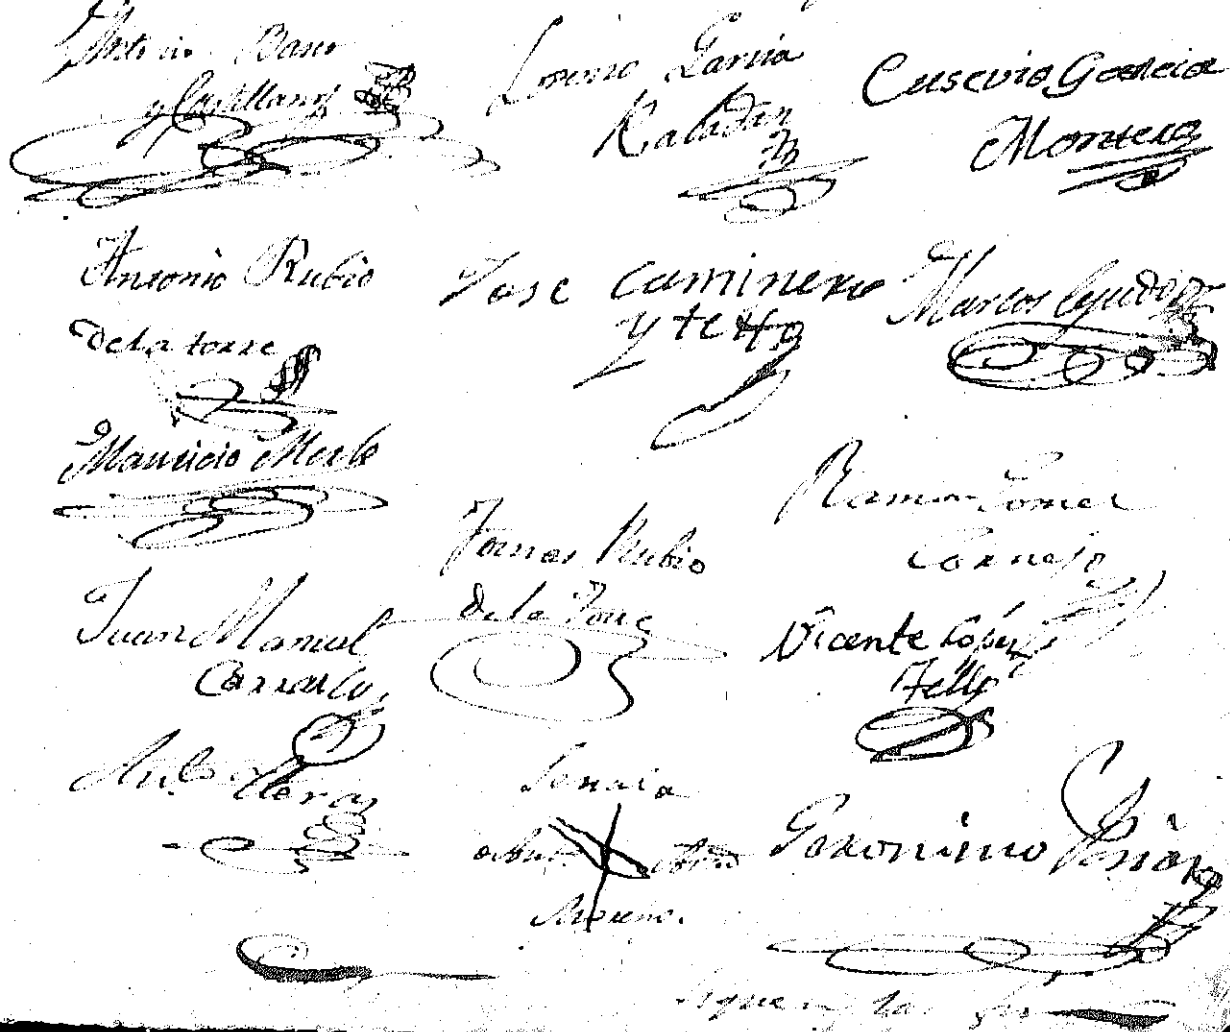 Antonio Baso
y Castellanos
Lorenzo Garcia
Rabadan
Eusevio Garcia
Montero
Antonio Rubio
de la torre
Jose Caminero
y tello
Marcos Cejudo
Mauricio Merlo
Ramon Gomez
Cornejo
Tomas Rubio
de la Torre
Juan Manuel
Carrasco
Vicente Lopez
Tello
Señal
de
Moreno.
Geronimo
siguen las